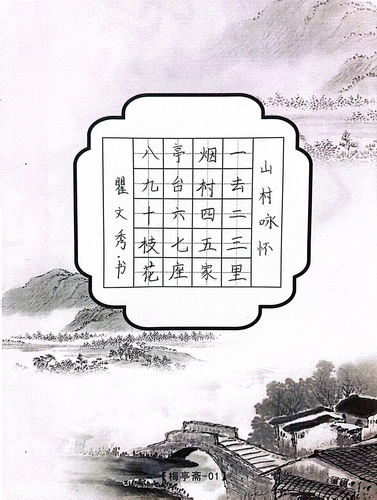 山村咏怀
一去二三里
烟村四五家
亭台六七座
八九十枝花
瞿文秀·书
【梅亭斋-01】